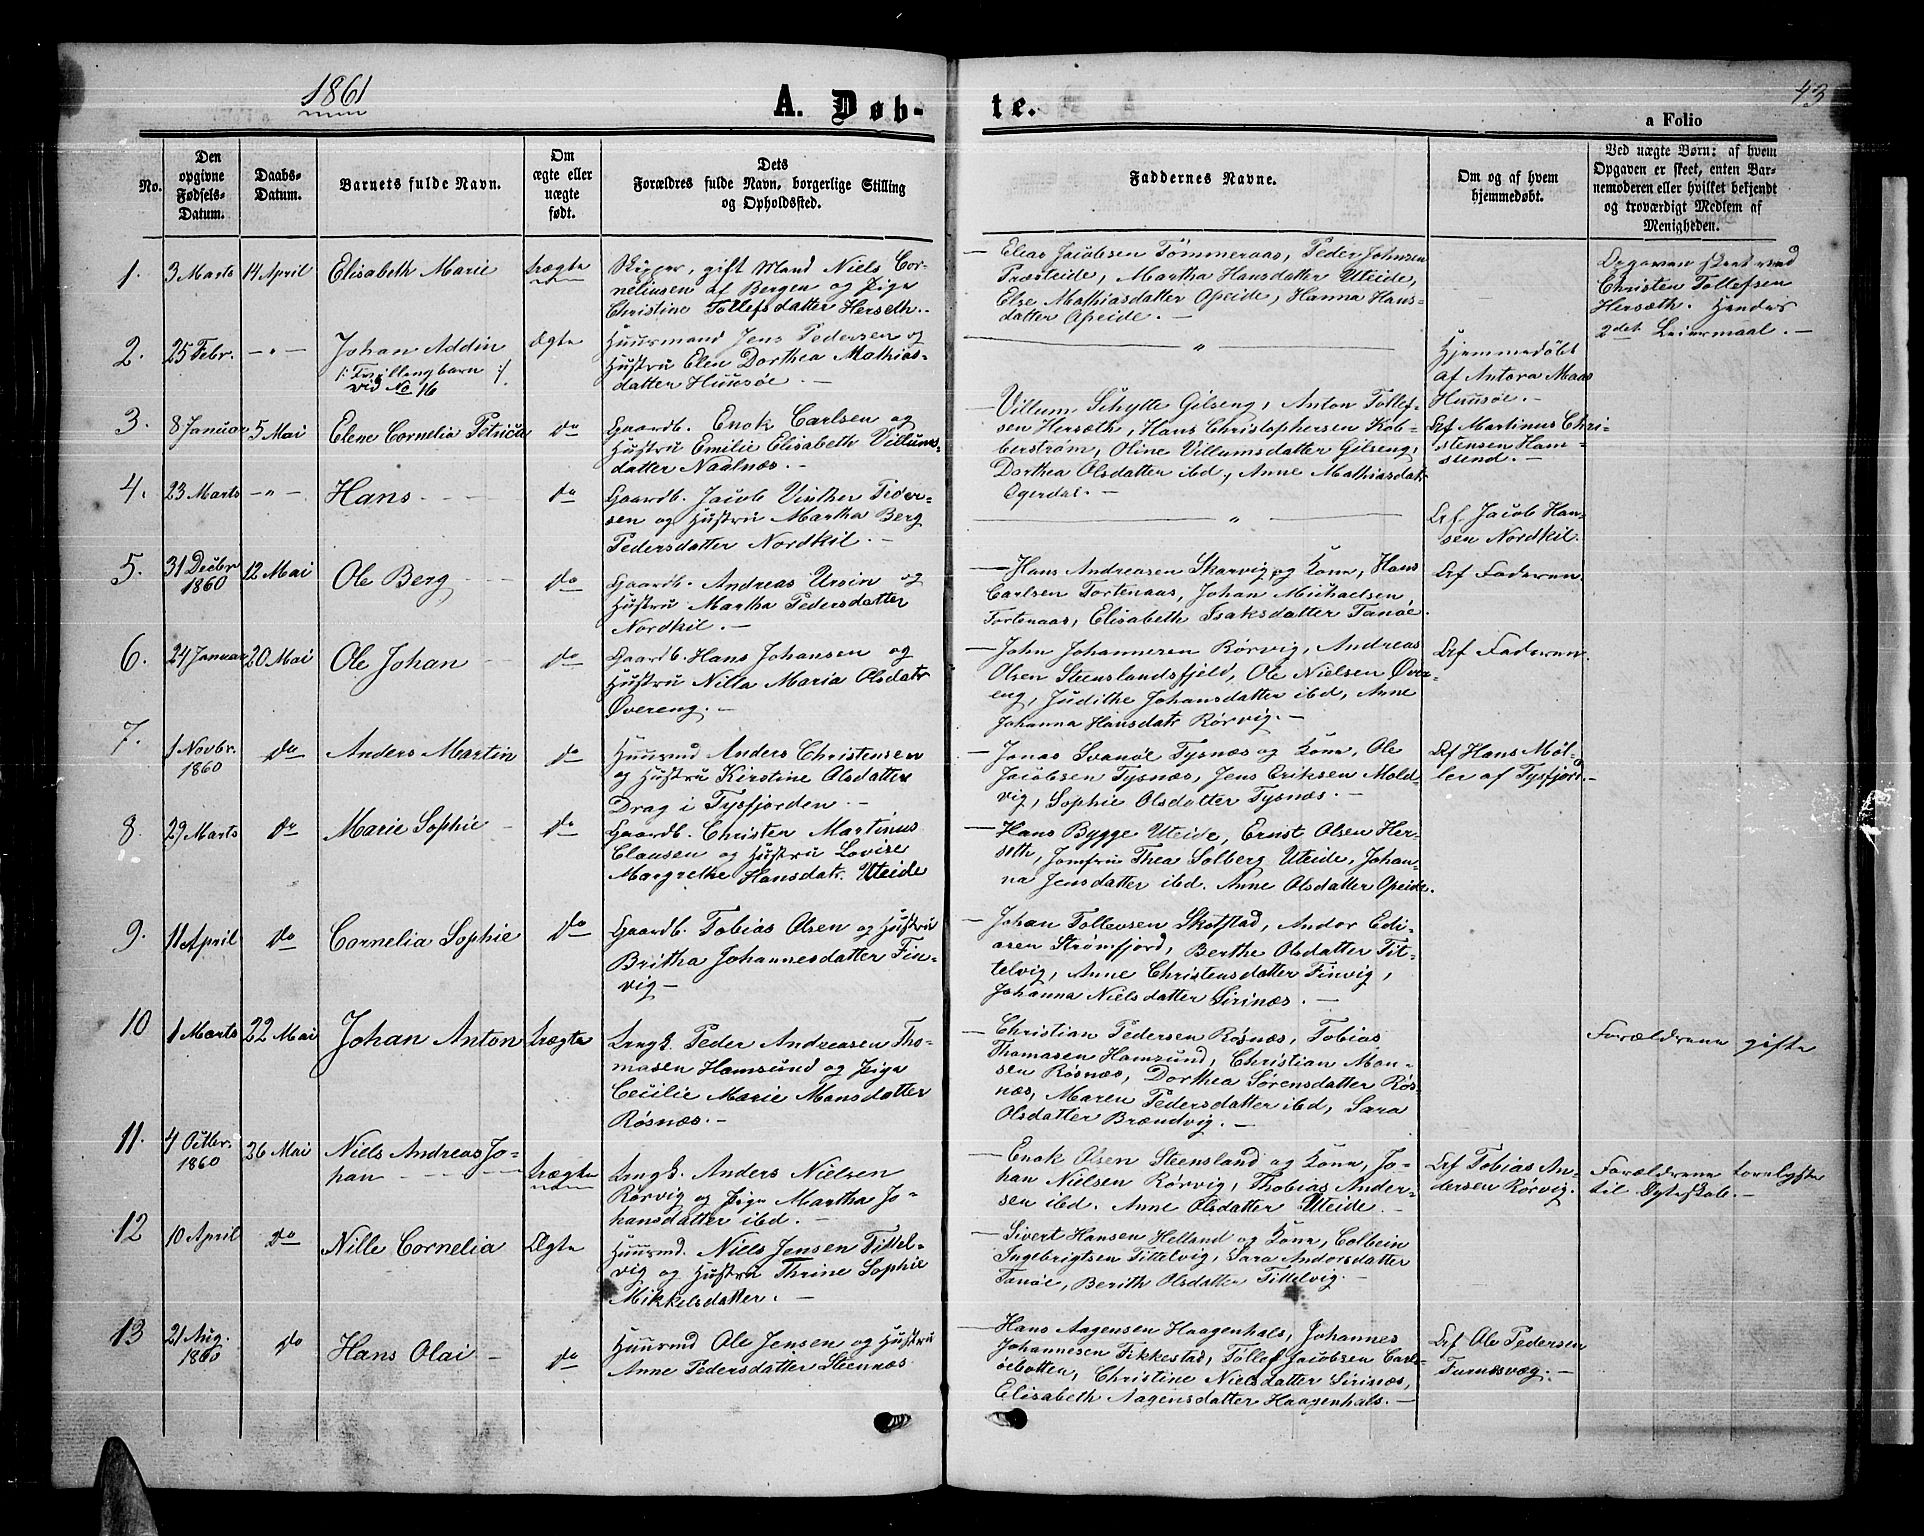 1861
43
A. Døb-
te.
a Folio
No.
Den
opgivne
Fødsels-
Datum.
Daabs-
Datum.
Barnets fulde Navn.
Om
ægte eller
uægte
født.
Dets
Forældres fulde Navn, borgerlige Stilling
og Opholdssted.
Faddernes Navne.
Om og af hvem
hjemmedøbt.
Ved uægte Børn: af hvem
Opgaven er skeet, enten Bar-
nemoderen eller hvilket bekjendt
og troværdigt Medlem af
Menigheden.
1.
3 Marts
14 April
Elisabeth Marie
Uægte
Skipper, gift Mand Niels Cor-
neliusen af Bergen og Pige
Christine Tollefsdatter Herseth.-
- Elias Jacobsen Tömmeraas, Peder Johnsen
Præsteide, Martha Hansdatter Uteide,
Else Mathiasdatter Opeide, Hanna Hans-
datter Opeide. -
Opgaven skeet ved
Christen Tollefsen
Hersæth. Hendes
2det Leiermaal. -
2.
25 Febr.
-"-
Johan Addin
/: Tvillingbarn :/
vid No 16
Ægte
Huusmand Jens Pedersen og
Hustru Elen Dorthea Mathias-
datter Huusöe. -
"
Hjemmedöbt
af Antora Maas
Huusöe. -
3.
8 Januar
5 Mai
Elene Cornelia Petrica
do
Gaardb. Enok Carlsen og
Hustru Emilie Elisabeth Villums-
datter Naalnæs. -
- Villum Schytte Gilseng, Anton Tollef-
sen Hersæth, Hans Christophersen Kob-
berström, Oline Villumsdatter Gilseng,
Dorthea Olsdatter ibd, Anne Mathiasdatr
Ogerdal. -
Af Martinus Chri-
stensen Ham-
sund. -
4.
23 Marts
-"-
Hans
do
Gaardb. Jacob Vinther Peder-
sen og Hustru Martha Berg
Pedersdatter Nordkil. -
"
Af Jacob Han-
sen Nordkil.
5.
31 Decbr
1860
12 Mai
Ole Berg
do
Gaardb. Andreas Ursin og
Hustru Martha Pedersdatter
Nordkil. -
- Hans Andreasen Skarvig og Kone, Hans
Carlsen Tortenaas, Johan Michaelsen,
Tortenaas, Elisabeth Isaksdatter Tanöe.
Af Faderen.
6.
24 Januar
20 Mai
Ole Johan
do
Gaardb. Hans Johansen og
Hustru Nilla Maria Olsdatr
Øvereng. -
- John Johannesen Rörvig, Andreas
Olsen Steenslandsfjeld, Ole Nielsen Øver-
eng, Judithe Johansdatter ibd, Anne
Johanna Hansdatr Rörvig. -
Af Faderen.
7.
1 Novbr.
1860
do
Anders Martin
do
Huusmd Anders Christensen
og Hustru Kirstine Olsdatter
Drag i Tysfjorden. -
- Jonas Svanöe Tysnæs og Kone, Ole
Jacobsen Tysnæs, Jens Eriksen Mold-
vig, Sophie Olsdatter Tysnæs. -
Af Hans Møl-
ler af Tysfjord. -
8.
29 Marts
do
Marie Sophie
do
Gaardb. Christen Martinus
Clausen og Hustru Lovise
Margrethe Hansdatr. Uteide
- Hans Bygge Uteide, Ernst Olsen Her-
seth, Jomfru Thea Solberg Uteide, Johan-
na Jensdatter ibd. Anne Olsdatter Opeide.
9.
11 April
do
Cornelia Sophie
do
Gaardb. Tobias Olsen og Hustru
Britha Johannesdatter Fin-
vig -
- Johan Tollevsen Skotstad, Andor Edi-
asen Strömfjord, Berthe Olsdatter Tit-
telvig, Anne Christensdatter Finvig,
Johanna Nielsdatter Sirinæs. -
10
1 Marts
22 Mai
Johan Anton
Uægte
Ungk. Peder Andreasen Tho-
masen Hamsund og Pige
Cecilie Marie Monsdatter
Røsnæs. -
- Christian Pedersen Røsnæs, Tobias
Thomasen Hamsund, Christian Mon-
sen Røsnæs, Dorthea Sørensdatter Røs-
næs, Maren Pedersdatter ibd, Sara
Olsdatter Brændvig. -
Forældrene gifte
11.
4 Octbr.
1860
26 Mai
Niels Andreas Jo-
han
Uægte
Ungk. Anders Nielsen
Rørvig og Pige Martha Jo-
hansdatter ibd. -
- Enok Olsen Steensland og Kone, Jo-
han Nielsen Rørvig, Thobias Ander-
sen ibd. Anne Olsdatter Uteide. -
Af Tobias An-
dersen Rørvig.
Forældrene trolovede
til Ægteskab. -
12
10 April
do
Nille Cornelia
Ægte
Huusmd. Niels Jensen Tittel-
vig og Hustru Thrine Sophie
Mikkelsdatter. -
- Sivert Hansen Helland og Kone, Colbein
Ingebrigtsen Tittelvig, Sara Andorsdatter
Tanöe, Berith Olsdatter Tittelvig. -
13
21 Aug.
1860
do
Hans Olai -
do
Huusmd Ole Jensen og Hustru
Anne Pedersdatter Steenæs
- Hans Aagensen Haagenhals, Johannes
Johannesen Fikkestad, Tollef Jacobsen Carls-
öebotten, Christine Nielsdatter Sirinæs,
Elisabeth Aagensdatter Haagenhals. -
Af Ole Pedersen
Furnesvæg. -